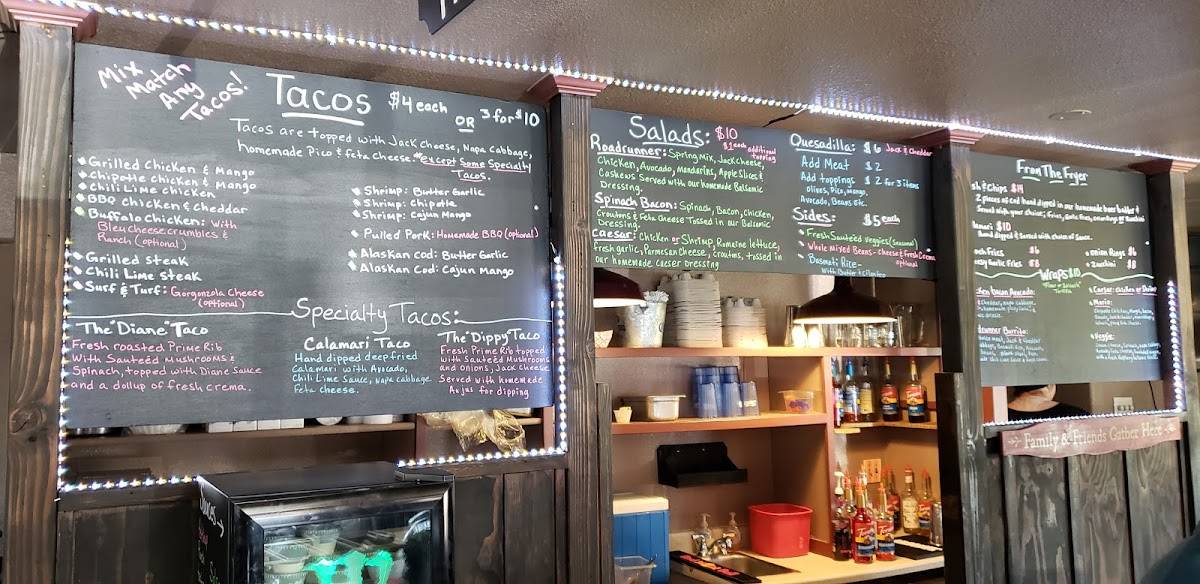 Mix
Match
Any
Tacos!
Tacos $4 each OR 3 for $10
Tacos are topped with Jack Cheese, Napa Cabbage,
homemade Pico & Feta Cheese *except some Specialty
Tacos.
Grilled Chicken & Mango
Chipotle chicken & Mango
Chili Lime chicken
BBQ Chicken & Cheddar
Buffalo Chicken: with
Bleu cheese crumbles &
Ranch (optional)
Grilled steak
Chili Lime steak
Surf & Turf: Gorgonzola Cheese
(optional)
Shrimp: Butter Garlic
Shrimp: Chipotle
Shrimp: Cajun Mango
Pulled Pork: Homemade BBQ (optional)
Alaskan Cod: Butter Garlic
Alaskan Cod: Cajun Mango
Specialty Tacos:
The "Diane" Taco
Fresh roasted Prime Rib
With Sautéed Mushrooms &
Spinach, topped with Diane Sauce
and a dollup of fresh crema.
Calamari Taco
Hand dipped deep fried
Calamari with Avocado,
Chili Lime Sauce, Napa cabbage
Feta cheese.
The "Dippy" Taco
Fresh Prime Rib topped
with Sautéed Mushrooms
and Onions, Jack Cheese
Served with homemade
Aujus for dipping
Salads: $10
$1 each additional
topping
Roadrunner: Spring Mix, Jack Cheese,
Chicken, Avocado, Mandarins, Apple Slices &
Cashews Served with our homemade Balsamic
Dressing.
Spinach Bacon: Spinach, Bacon, chicken,
Croutons & Feta Cheese Tossed in our Balsamic
Dressing.
Caesar: Chicken or Shrimp, Romaine lettuce,
fresh garlic, Parmesan Cheese, Croutons, tossed in
our homemade caeser Dressing
Quesadilla: $6 Jack & Cheddar
Add Meat $2
Add toppings $2 for 3 items
Olives, Pico, mango,
Avocado, Beans Etc.
Sides: $5 each
Fresh Sautéed Veggies (seasonal)
Whole Mixed Beans - cheese & Fresh Crema
optional
Basmati Rice
With Butter & Cilantro
From The Fryer
& Chips $14
2 pieces of cod hand dipped in our homemade beer batter &
$10
Hand dipped & served with choice of sauce.
Fries $6
Fries $8
onion Rings $6
Zucchini $8
Wraps $10
"Flour or Spinach"
Tortilla
Bacon Avocado:
Burrito:
Caesar: chicken or Shrimp
Veggie:
Family & Friends Gather Here
Torani